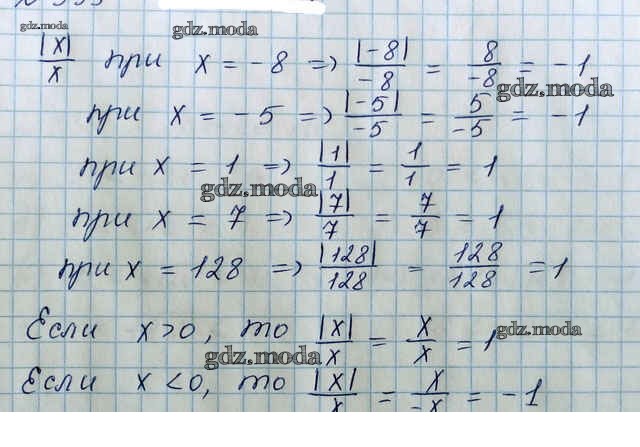 gdz.moda
|x|/x при x = -8 => |-8|/-8 = 8/-8 = -1
gdz.moda
при x = -5 => |-5|/-5 = 5/-5 = -1
при x = 1 => |1|/1 = 1/1 = 1
gdz.moda
при x = 7 => |7|/7 = 7/7 = 1
при x = 128 => |128|/128 = 128/128 = 1
Если x>0, то |x|/x = x/x = 1
gdz.moda
gdz.moda
Если x<0, то |x|/x = x/-x = -1